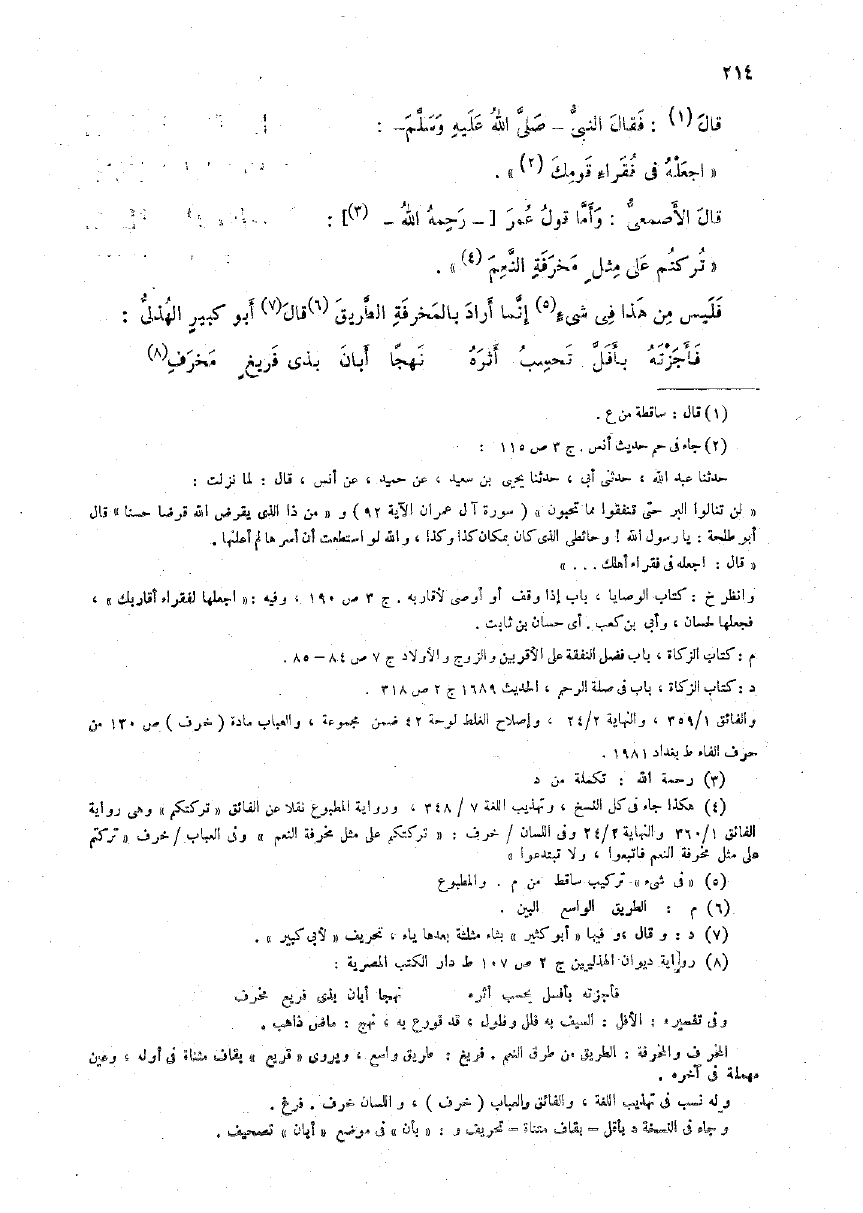 ٢١٤
قالَ (١) : فَقالَ النبىُّ – صَلىَّ اللهُ عَلَيهِ وَسَلَّمَ– :
« اجعَلْهُ فى فُقَراءِ قَومِكَ (٢) » .
قالَ الأَصمعىُّ : وَأَمَّا قولُ عُمرَ [ – رَحِمهُ اللهُ – (٣)] :
« تُركتُم عَلى مِثلِ مَخرَفَةِ النَّعِمَ (٤) » .
فَلَيس مِن هَذا فِى شىءٍ (٥) إنَّما أَرادَ بالمَخرفَةِ الطَّريقَ (٦) قالَ (٧) أَبو كبيرٍ الهُذلىُّ :
فَأَجَزْتَهُ بأَفَلَّ تَحسِبُ أَثرَهُ نَهجًا أَبانَ بذى فَريغٍ مَخرَفِ (٨)
(١) قال : ساقطة من ع .
(٢) جاء فى حم حديث أنس . ج ٣ ص ١١٥ :
حدثنا عبد الله ، حدثنى أبى ، حدثنا يحيى بن سعيد ، عن حميد ، عن أنس ، قال : لما نزلت :
« لن تنالوا البر حتى تنفقوا مما تحبون » ( سورة آل عمران الآية ٩٢ ) و « من ذا الذى يقرض الله قرضا حسنا » قال
أبو طلحة : يا رسول الله ! وحائطى الذى كان بمكان كذا وكذا ، والله لو استطعت أن أسرها لم أعلنها .
« قال : اجعله فى فقراء أهلك . . . »
وانظر خ : كتاب الوصايا ، باب إذا وقف أو أوصى لأقاربه . ج ٣ ص ١٩٠ ، وفيه : « اجعلها لفقراء أقاربك » ،
فجعلها لحسان ، وأبى بن كعب . أى حسان بن ثابت .
م : كتاب الزكاة ، باب فضل النفقة على الأقربين والزوج والأولاد ج ٧ ص ٨٤ – ٨٥ .
د : كتاب الزكاة ، باب فى صلة الرحم ، الحديث ١٦٨٩ ج ٢ ص ٣١٨ .
والفائق ٣٥٩/١ ، والنهاية ٢٤/٢ ، وإصلاح الغلط لوحة ٤٢ ضمن مجموعة ، والعباب مادة ( خرف ) ص ١٣٠ من
حرف الفاء ط بغداد ١٩٨١ .
(٣) رحمة الله : تكملة من د
(٤) هكذا جاء فى كل النسخ ، وتهذيب اللغة ٧ / ٣٤٨ ، ورواية المطبوع نقلا عن الفائق « تركتكم » وهى رواية
الفائق ٣٦٠/١ والنهاية ٢٤/٢ وفى اللسان / خرف : « تركتكم على مثل مخرفة النعم » وفى العباب / خرف « تركتم
على مثل مخرفة النعم فاتبعوا ، ولا تبتدعوا »
(٥) « فى شىء » تركيب ساقط من م . والمطبوع
(٦) م : الطريق الواسع البين .
(٧) د : وقال ، وفيها « أبو كثير » بثاء مثلثة بعدها ياء ، تحريف « لأبى كبير » .
(٨) رواية ديوان الهذليين ج ٢ ص ١٠٧ ط دار الكتب المصرية :
فأجزته بأفسل يحسب أثره نهجا أبان بذى فريغ مخرف
وفى تفسيره : الأفل : السيف به فلل وفلول ، قد قورع به ، نهج : ماض ذاهب .
المخرف والمخرفة : الطريق من طرق النعم . فريغ : طريق واسع ، ويروى « قريع » بقاف مثناة فى أوله ، وعين
مهملة فى آخره .
وله نسب فى تهذيب اللغة ، والفائق والعباب ( خرف ) ، واللسان خرف . فرغ .
وجاء فى النسخة د بأقل – بقاف مثناة – تحريف و : « بأن » فى موضع « أبان » تصحيف .